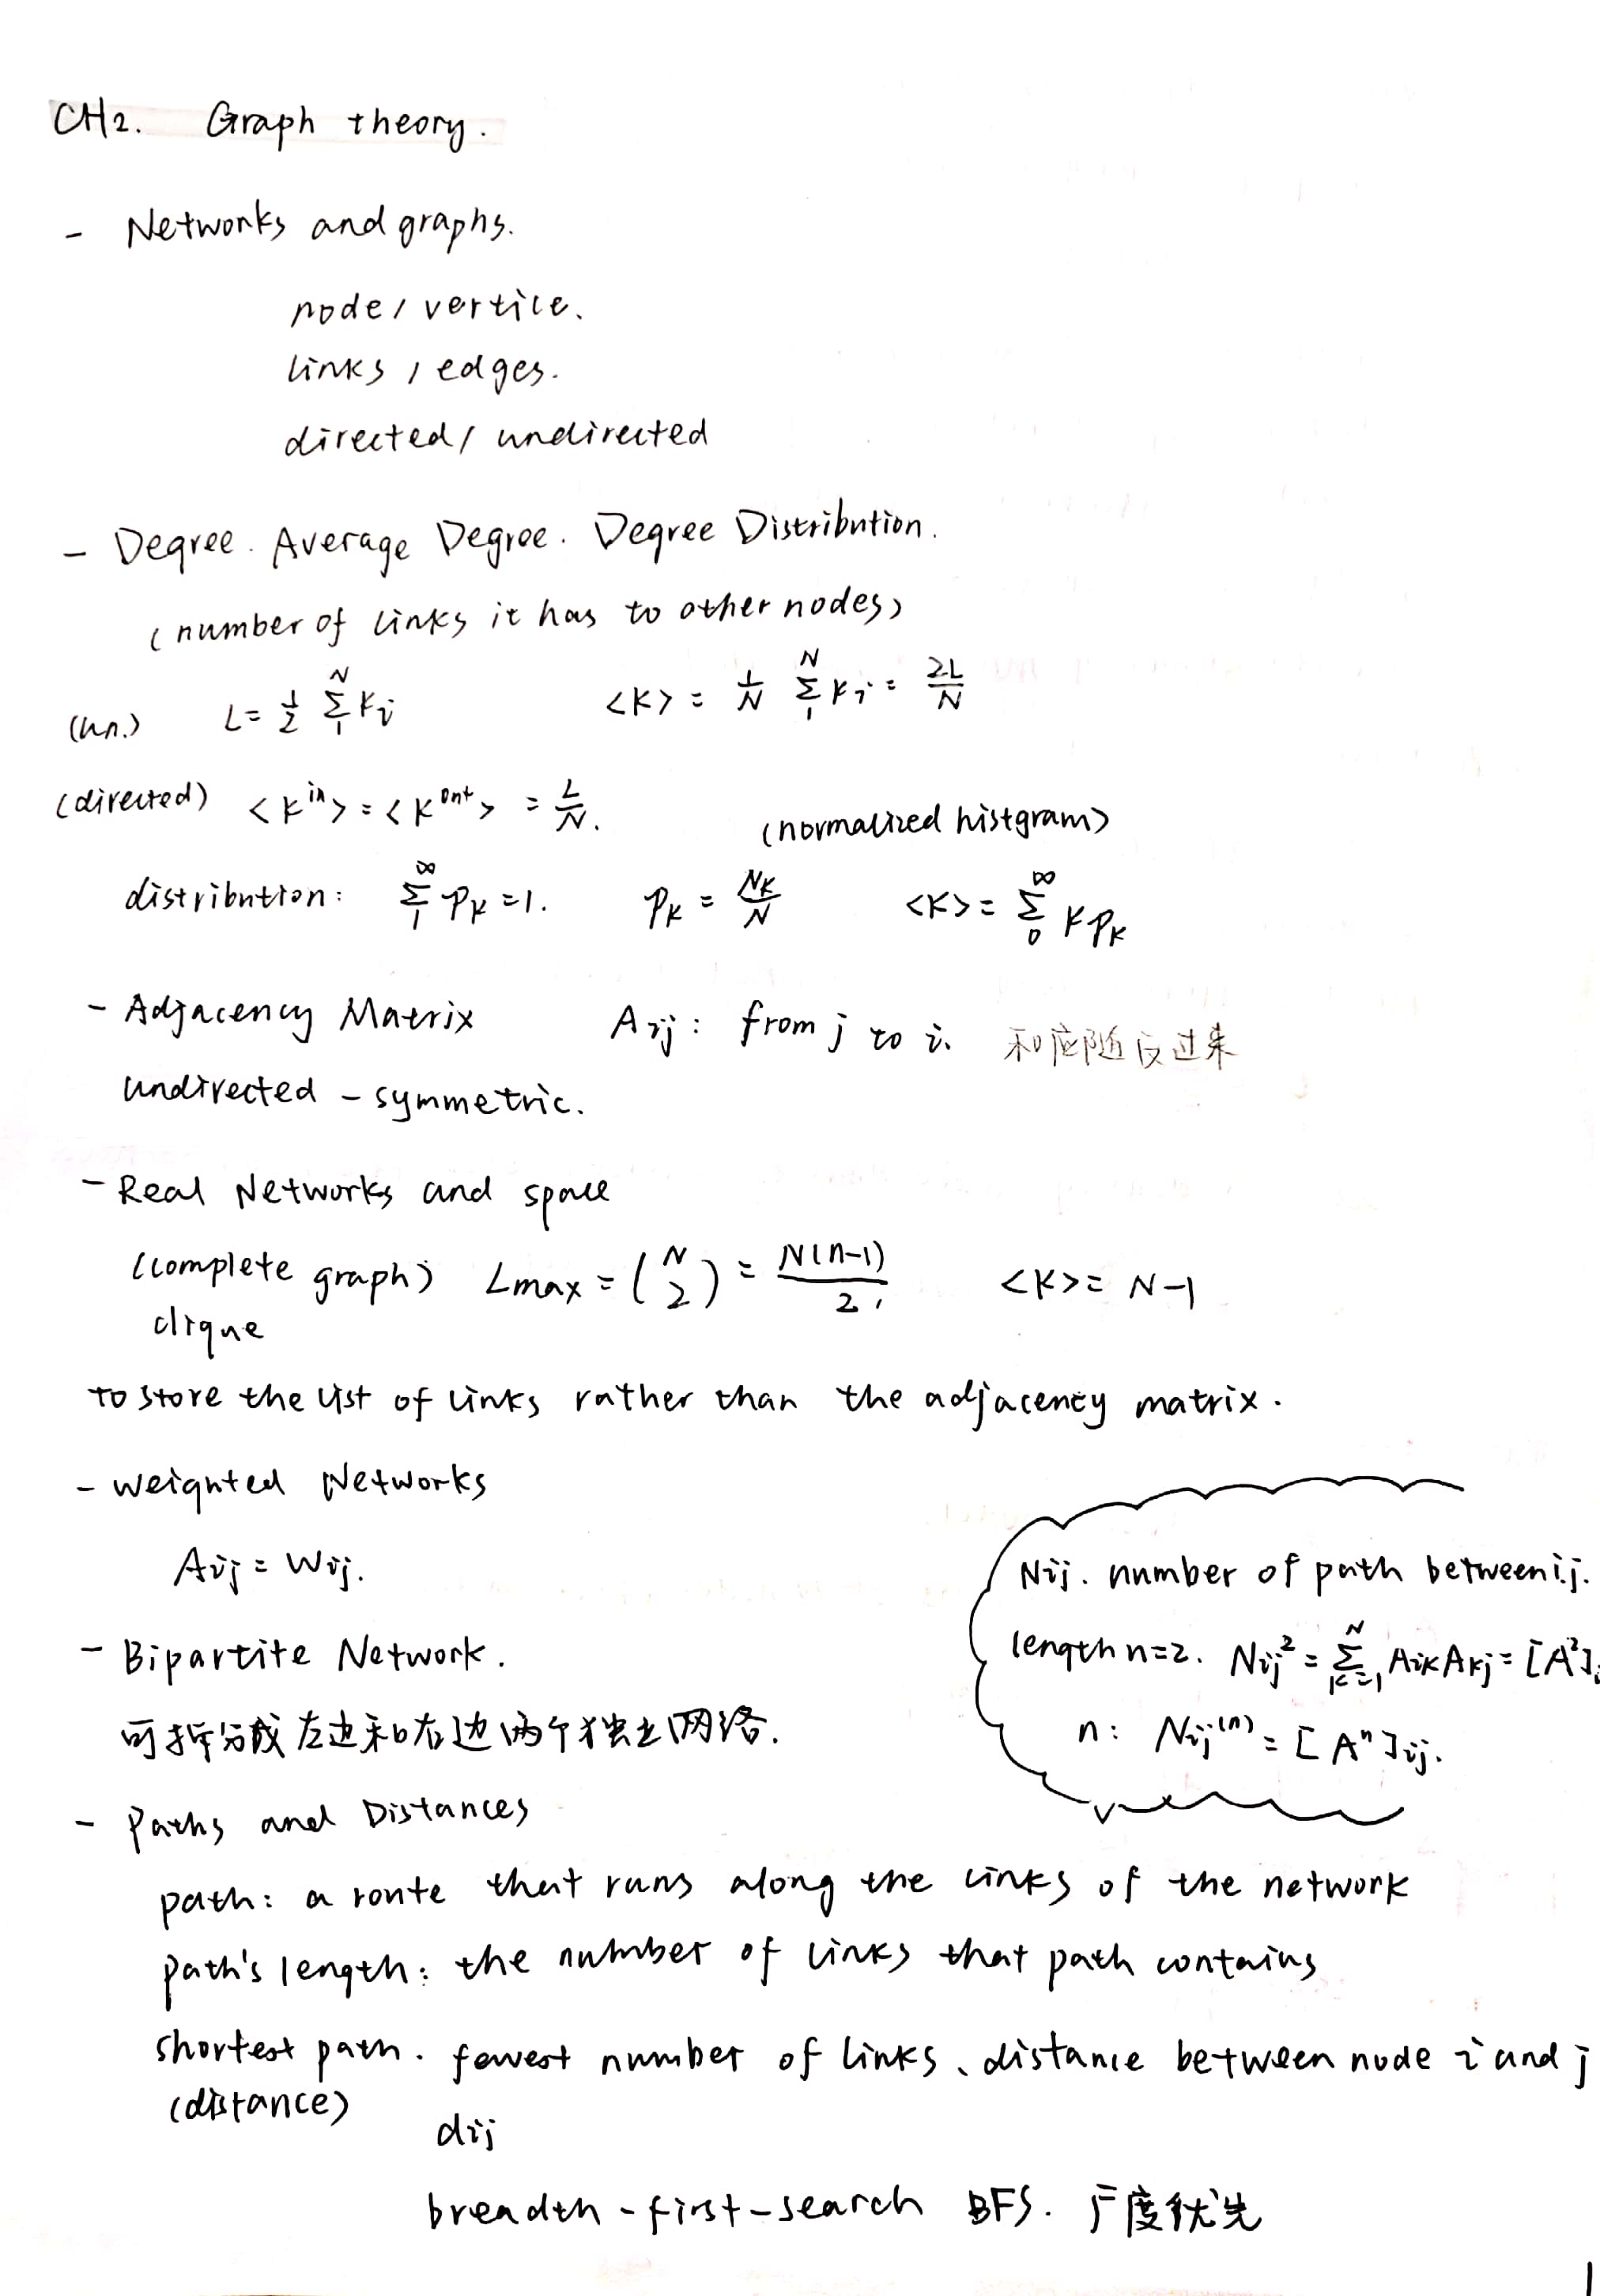 CH2. Graph theory.
- Networks and graphs.
node / vertice.
links / edges.
directed / undirected
- Degree. Average Degree. Degree Distribution.
(number of links it has to other nodes)
(un.) L = 1/2 Σ_1^N k_i <k> = 1/N Σ_1^N k_i = 2L/N
(directed) <k^in> = <k^out> = L/N.
(normalized histgram)
distribution: Σ_1^∞ p_k = 1. p_k = N_k/N <k> = Σ_0^∞ k p_k
- Adjacency Matrix A_ij : from j to i. 和应随反过来
undirected - symmetric.
- Real Networks and space
(complete graph) L_max = (N 2) = N(n-1)/2. <k> = N-1
clique
to store the list of links rather than the adjacency matrix.
- weighted Networks
A_ij = W_ij.
- Bipartite Network.
可拆分成左边和右边两个独立网络.
N_ij. number of path between i.j.
length n=2. N_ij^2 = Σ_{k=1}^N A_ik A_kj = [A^2]
n: N_ij^(n) = [A^n]_ij.
- Paths and Distances
path: a route that runs along the links of the network
path's length: the number of links that path contains
shortest path. fewest number of links、distance between node i and j
(distance)
d_ij
breadth-first-search BFS. 广度优先